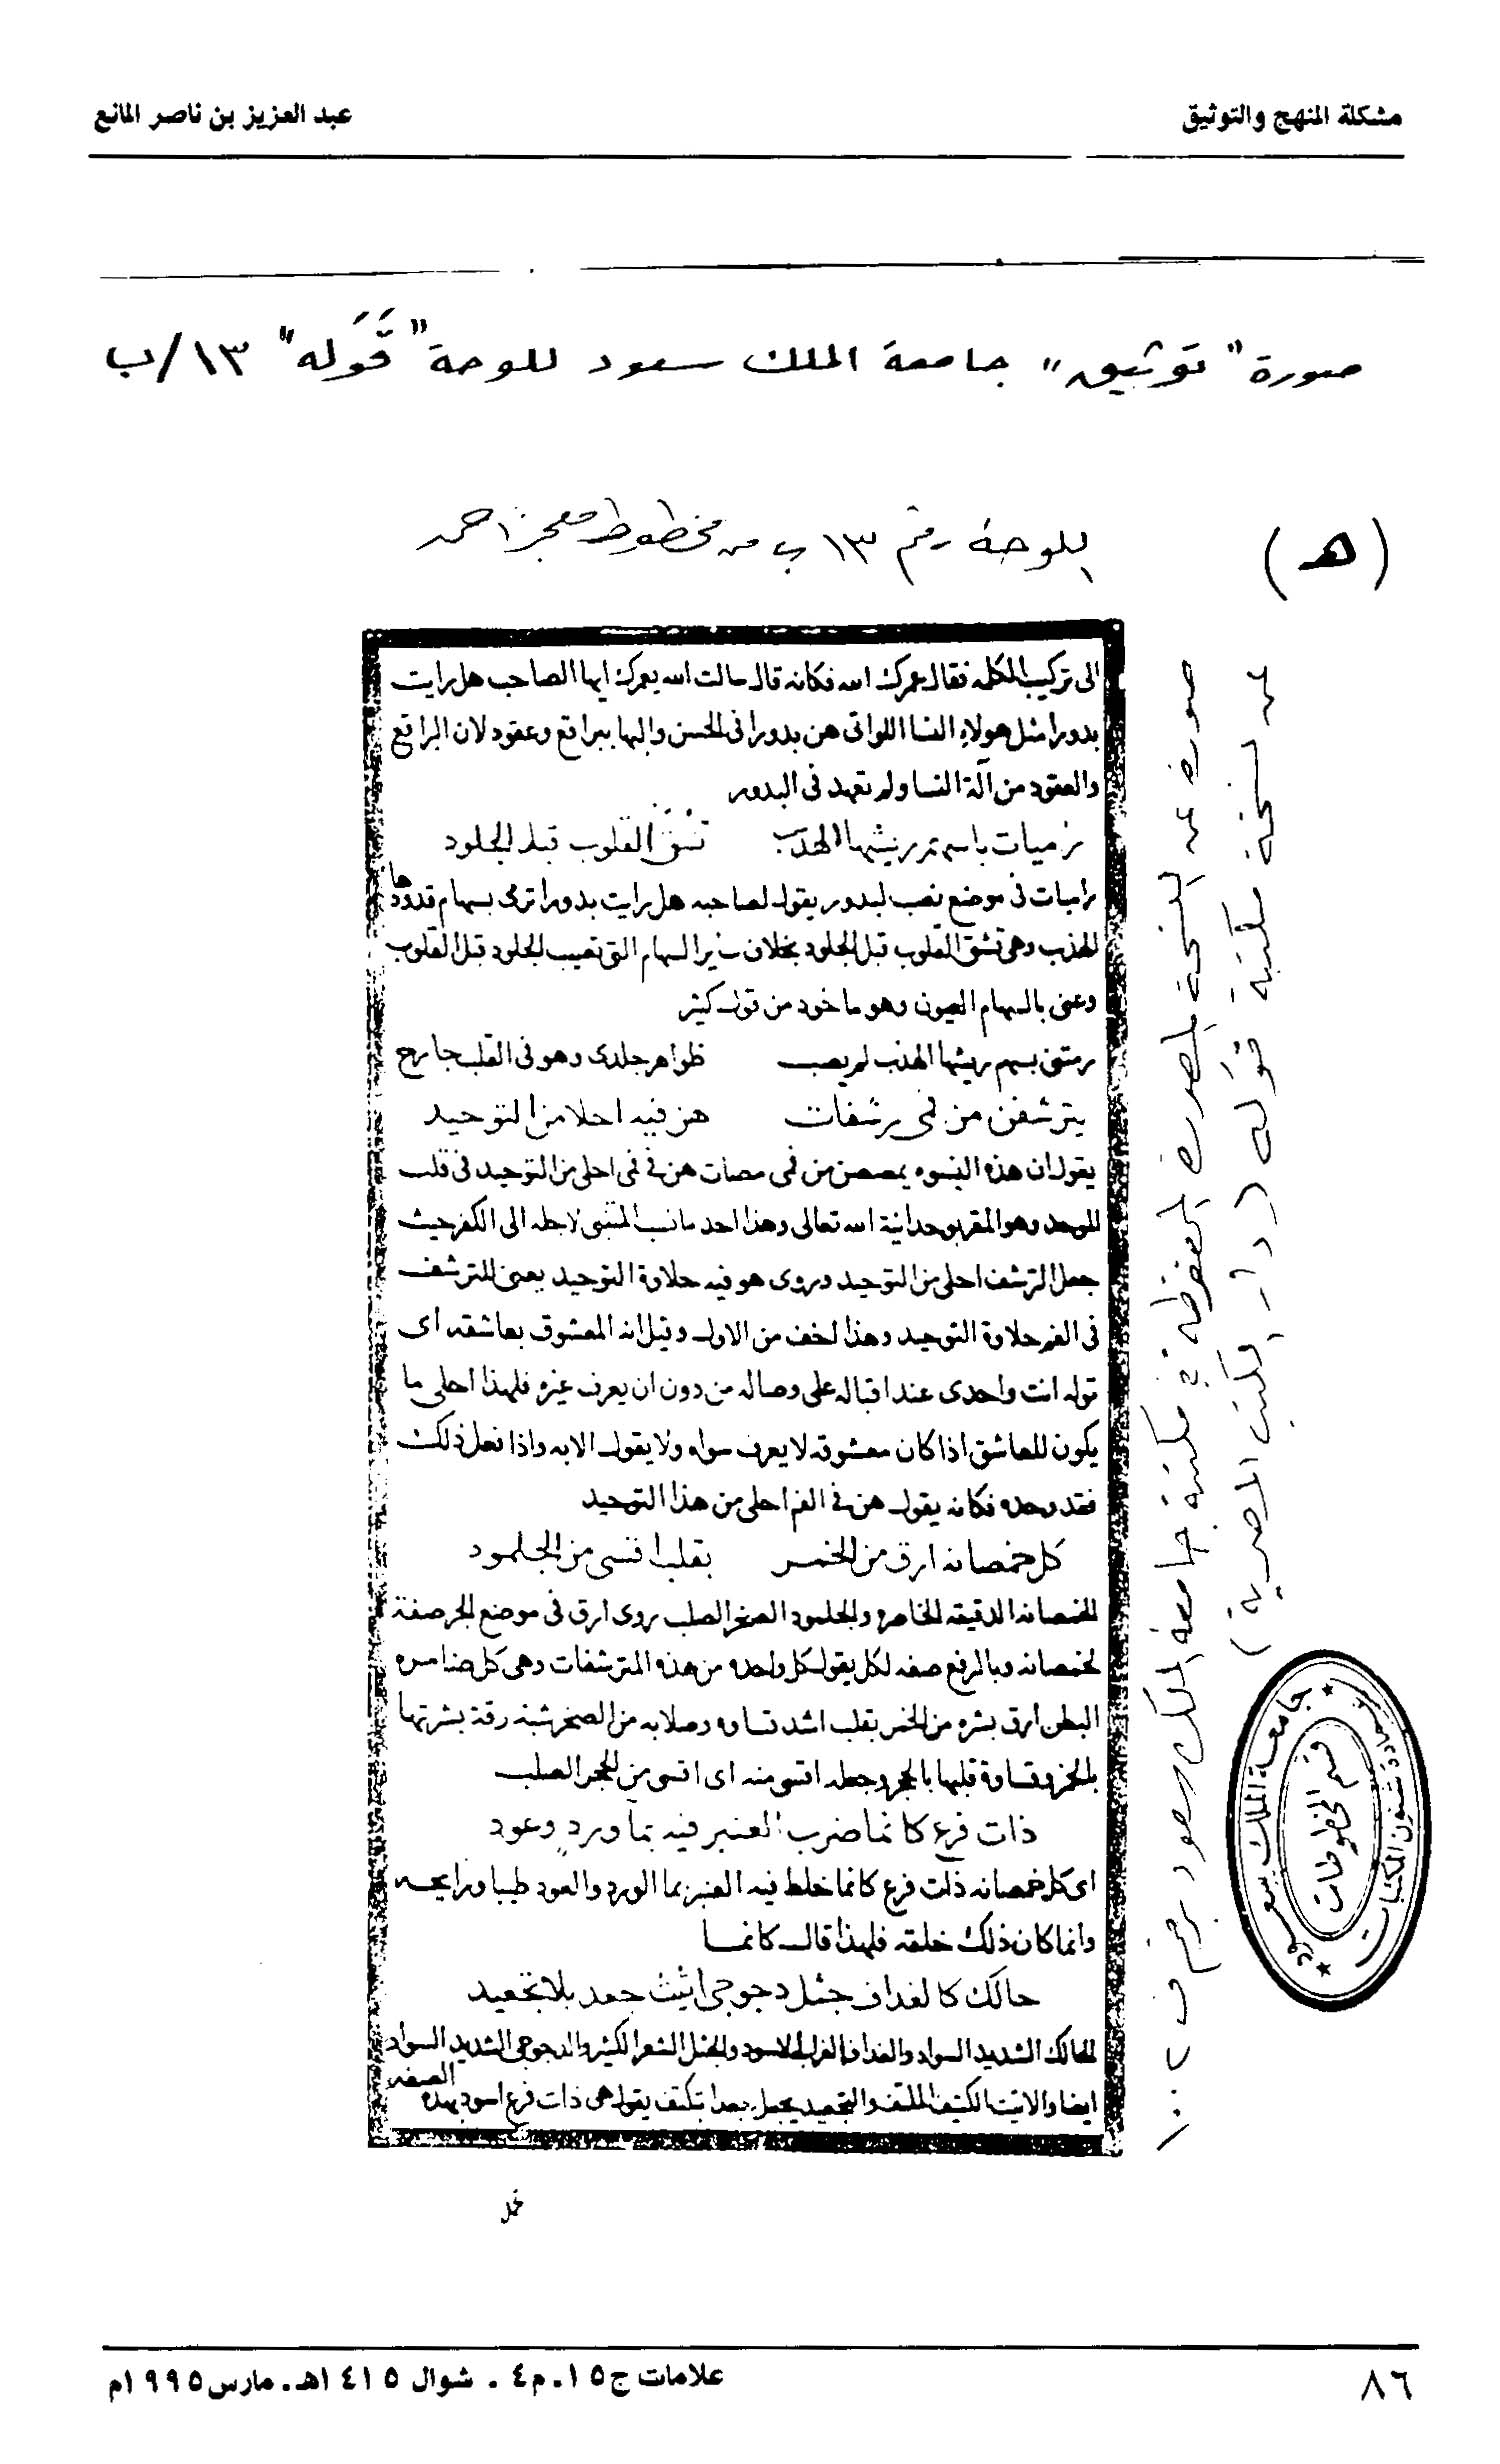 مشكلة المنهج والتوثيق
عبد العزيز بن ناصر المانع
صورة "توثيق" جامعة الملك سعود للوحة "قَوَله" ١٣/ب
(هـ)
اللوحة رقم ١٣ ب من مخطوط معجز احمد
الى تركيب الكلمه فقال عمرك الله فكانه قال سالت الله يعمرك ايها الصاحب هل رايت
بدورا مثل هولاء النسا اللواتى هن بدورا فى الحسن والبها ببراقع وعقود لان البراقع
والعقود من آلة النسا ولم تعهد فى البدور
راميات باسهم ريشها الهدب تشق القلوب قبل الجلود
راميات فى موضع نصب لبدور يقول لصاحبه هل رايت بدورا ترمى بسهام قدودها
الهدب وهى تشق القلوب قبل الجلود بخلاف سائر السهام التى تصيب الجلود قبل القلوب
وعنى بالسهام العيون وهو ماخود من قول كثير
رمتنى بسهم ريشها الهدب لم يصب ظواهر جلدى وهو فى القلب جارح
يترشفن من فمى رشفات هن فيه احلا من التوحيد
يقول ان هذه النسوه يمصصن من فمى مصات هن فى فمى احلى من التوحيد فى قلب
الموحد وهو المقر بوحدانية الله تعالى وهذا احد ما نسب المتنبى لاجله الى الكفر حيث
جعل الترشف احلى من التوحيد ويروى هو فيه حلاوة التوحيد يعنى للترشف
فى الفم حلاوة التوحيد وهذا اخف من الاول وقيل انه المعشوق بعاشقه اى
قوله انت واحدى عند اقباله على وصاله من دون ان يعرف غيره فلهذا احلى ما
يكون للعاشق اذا كان معشوقه لا يعرف سواه ولا يقول الا به واذا فعل ذلك
فقد وحده فكانه يقول هن فى الفم احلى من هذا التوحيد
كل خمصانه ارق من الخمر بقلب اقسى من الجلمود
الخمصانه الدقيقه الخاصره والجلمود الصخر الصلب يروى ارق فى موضع الجر صفة
لخمصانه وبالرفع صفه لكل يقول كل واحده من هذه المترشفات وهى كل ضامره
البطن ارق بشره من الخمر بقلب اشد قساوه وصلابه من الصخر شبه رقة بشرتها
بالخمر وقساوة قلبها بالحجر وجعله اقسى منه اى اقسى من الحجر الصلب
ذات فرع كانما ضرب العنبر فيه بما ورد وعود
اى كل خمصانه ذات فرع كانما خلط فيه العنبر بما الورد والعود طيبا ورايحه
وانما كان ذلك خلقه فلهذا قال كانما
حالك كالغداف جثل دجوجى اثيث جعد بلا تجعيد
الحالك الشديد السواد والغداف الغراب الاسود والجثل الشعر الكثير والدجوجى الشديد السواد
ايضا والاثيث الكثيف الملتف والتجعيد يجعل جعدا بتكلف يقول هى ذات فرع اسود بهذه
الصفه
صورة عن النسخة المصورة المحفوظة في مكتبة جامعة الملك سعود برقم ف ١٠٠٢
عن نسخة مكتبة قوله (دار الكتب المصرية)
جامعة الملك سعود
عمادة شئون المكتبات
قسم المخطوطات
٨٦
علامات ج١٥. م٤ . شوال ١٤١٥هـ. مارس ١٩٩٥م